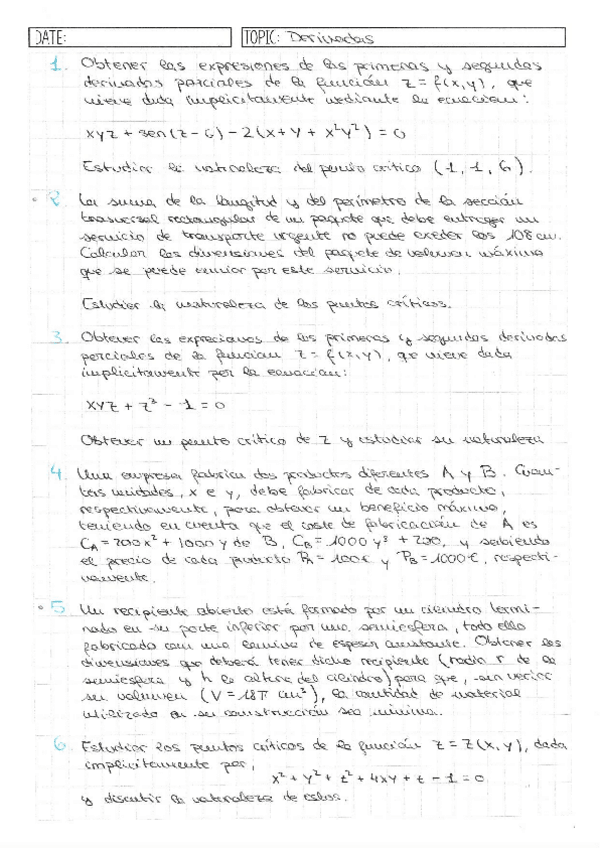 DATE: TOPIC: Derivadas
1. Obtener las expresiones de las primeras y segundas
derivadas parciales de la función z = f(x,y), que
viene dada implícitamente mediante la ecuación:
xyz + sen(z - 6) - 2(x+y + x²y²) = 0
Estudiar la naturaleza del punto crítico (1, 1, 6).
2. La suma de la longitud y del perímetro de la sección
trasversal rectangular de un paquete que debe entregar un
servicio de transporte urgente no puede exeder los 108 cm.
Calcular las dimensiones del paquete de volumen máximo
que se puede enviar por este servicio.
Estudiar la naturaleza de los puntos críticos.
3. Obtener las expresiones de las primeras y segundas derivadas
parciales de la función z = f(x,y), que viene dada
implícitamente por la ecuación:
xyz + z³ - 1 = 0
Obtener un punto crítico de z y estudiar su naturaleza
4. Una empresa fabrica dos productos diferentes A y B. Cuan-
tas unidades, x e y, debe fabricar de cada producto,
respectivamente, para obtener un beneficio máximo,
teniendo en cuenta que el coste de fabricación de A es
C_A = 200x² + 1000 y de B, C_B = 1000y³ + 200, y sabiendo
el precio de cada producto P_A = 100€ y P_B = 1000€, respecti-
vamente.
5. Un recipiente abierto está formado por un cilindro termi-
nado en su parte inferior por una semiesfera, todo ello
fabricado con una lámina de espesor constante. Obtener las
dimensiones que deberá tener dicho recipiente (radio r de la
semiesfera y h la altura del cilindro) para que, sin variar
su volumen (V = 18π cm³), la cantidad de material
utilizado en su construcción sea mínima.
6. Estudiar los puntos críticos de la función z = z(x,y), dada
implícitamente por,
x² + y² + z² + 4xy + z - 1 = 0
y discutir la naturaleza de estos.